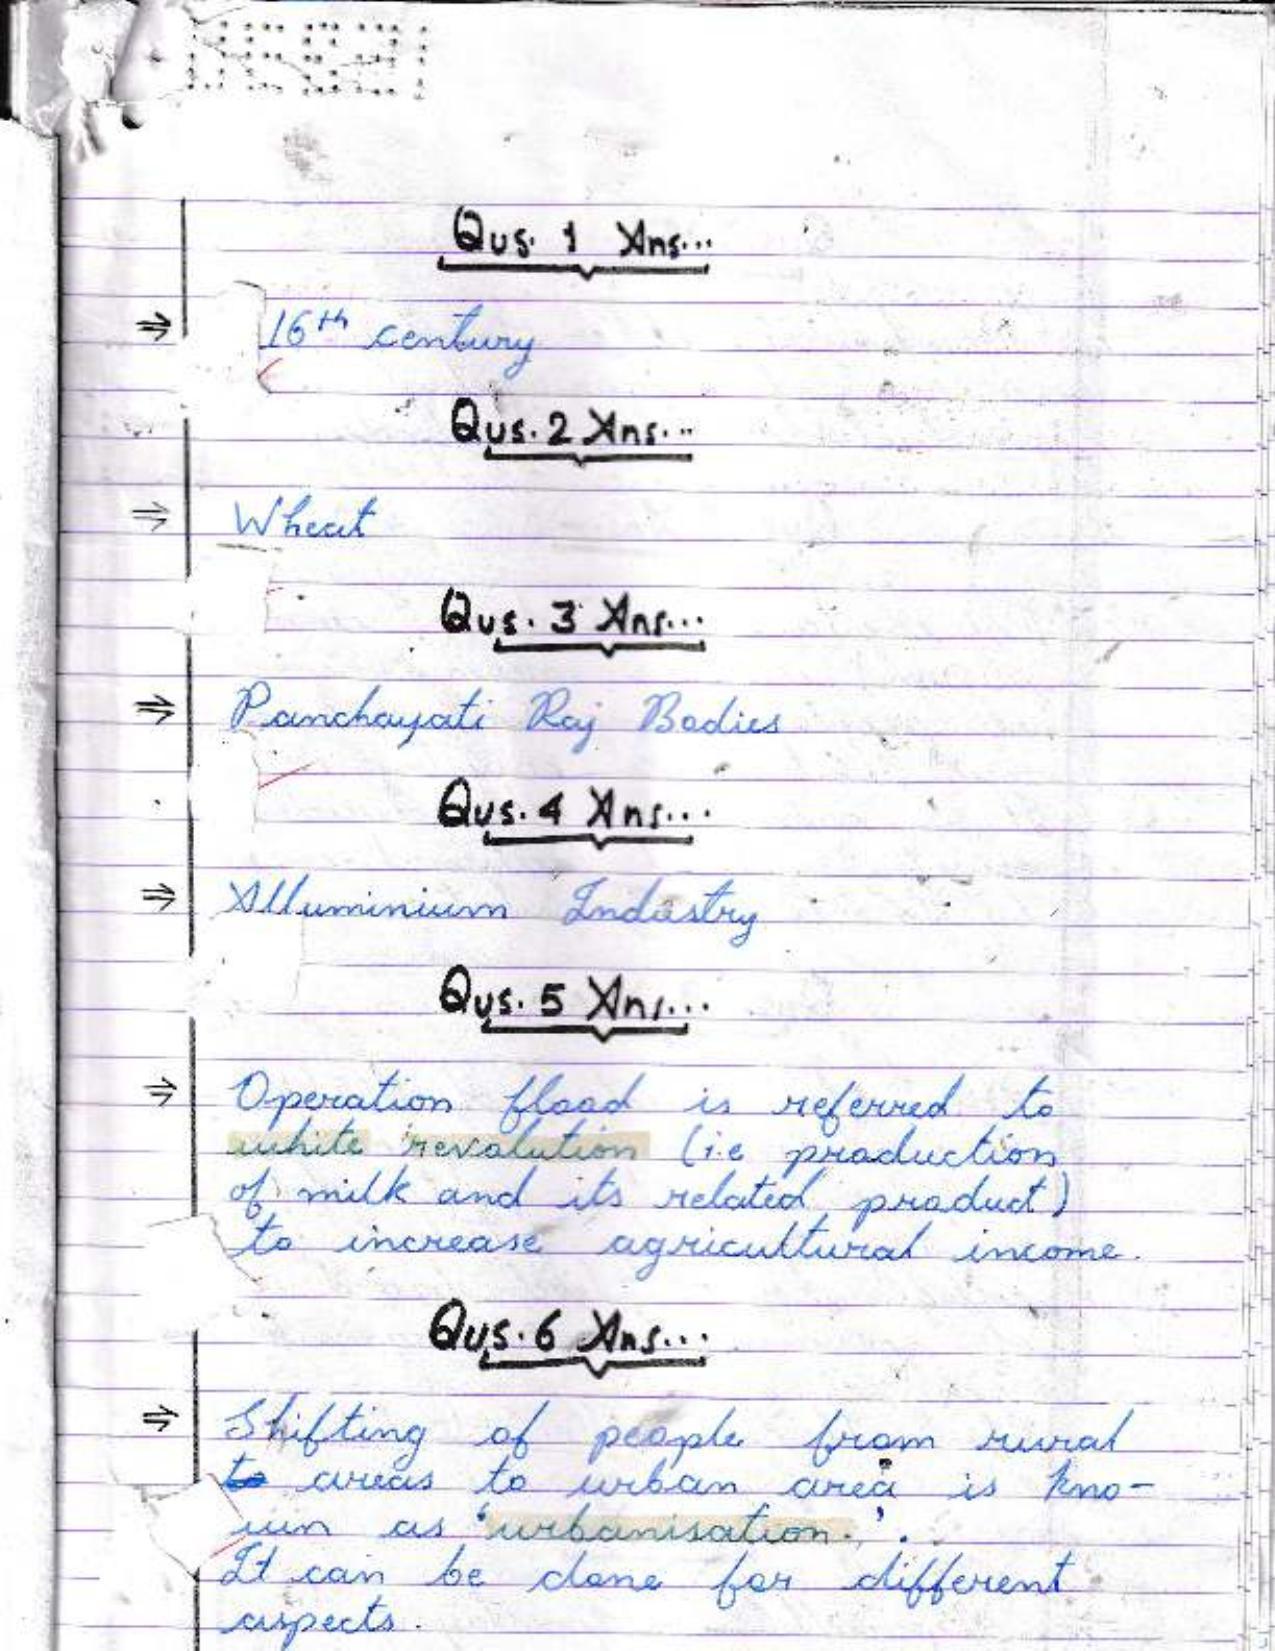 Qus. 1 Ans...
⇒ 16th century
Qus. 2 Ans...
⇒ Wheat
Qus. 3 Ans...
⇒ Panchayati Raj Bodies
Qus. 4 Ans...
⇒ Alluminium Industry
Qus. 5 Ans...
⇒ Operation flood is referred to
white revolution (i.e production
of milk and its related product)
to increase agricultural income.
Qus. 6 Ans...
⇒ Shifting of people from rural
areas to urban area is kno-
wn as 'urbanisation.'.
It can be done for different
aspects.